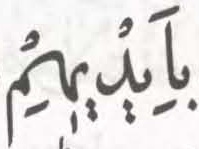 بِاَيْدِيهِمْ